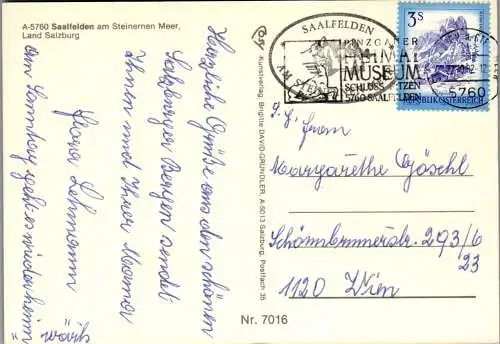 A-5760 Saalfelden am Steinernen Meer,
Land Salzburg
Herzliche Grüße aus den schönen
Salzburger Bergen sendet
Ihnen und Ihrer Mama
Georg Lehmann
am Samstag geht es wieder heim
Kunstverlag, Brigitte DAVID-GRÜNDLER, A-5013 Salzburg, Postfach 35
Nr. 7016
SAALFELDEN
PINZGAUER
HEIMAT
MUSEUM
SCHLOSS RITZEN
5760 SAALFELDEN
3S
REPUBLIK ÖSTERREICH
5760
Margarethe Göschl
Schönbrunnerstr. 293/6
23
1120 Wien